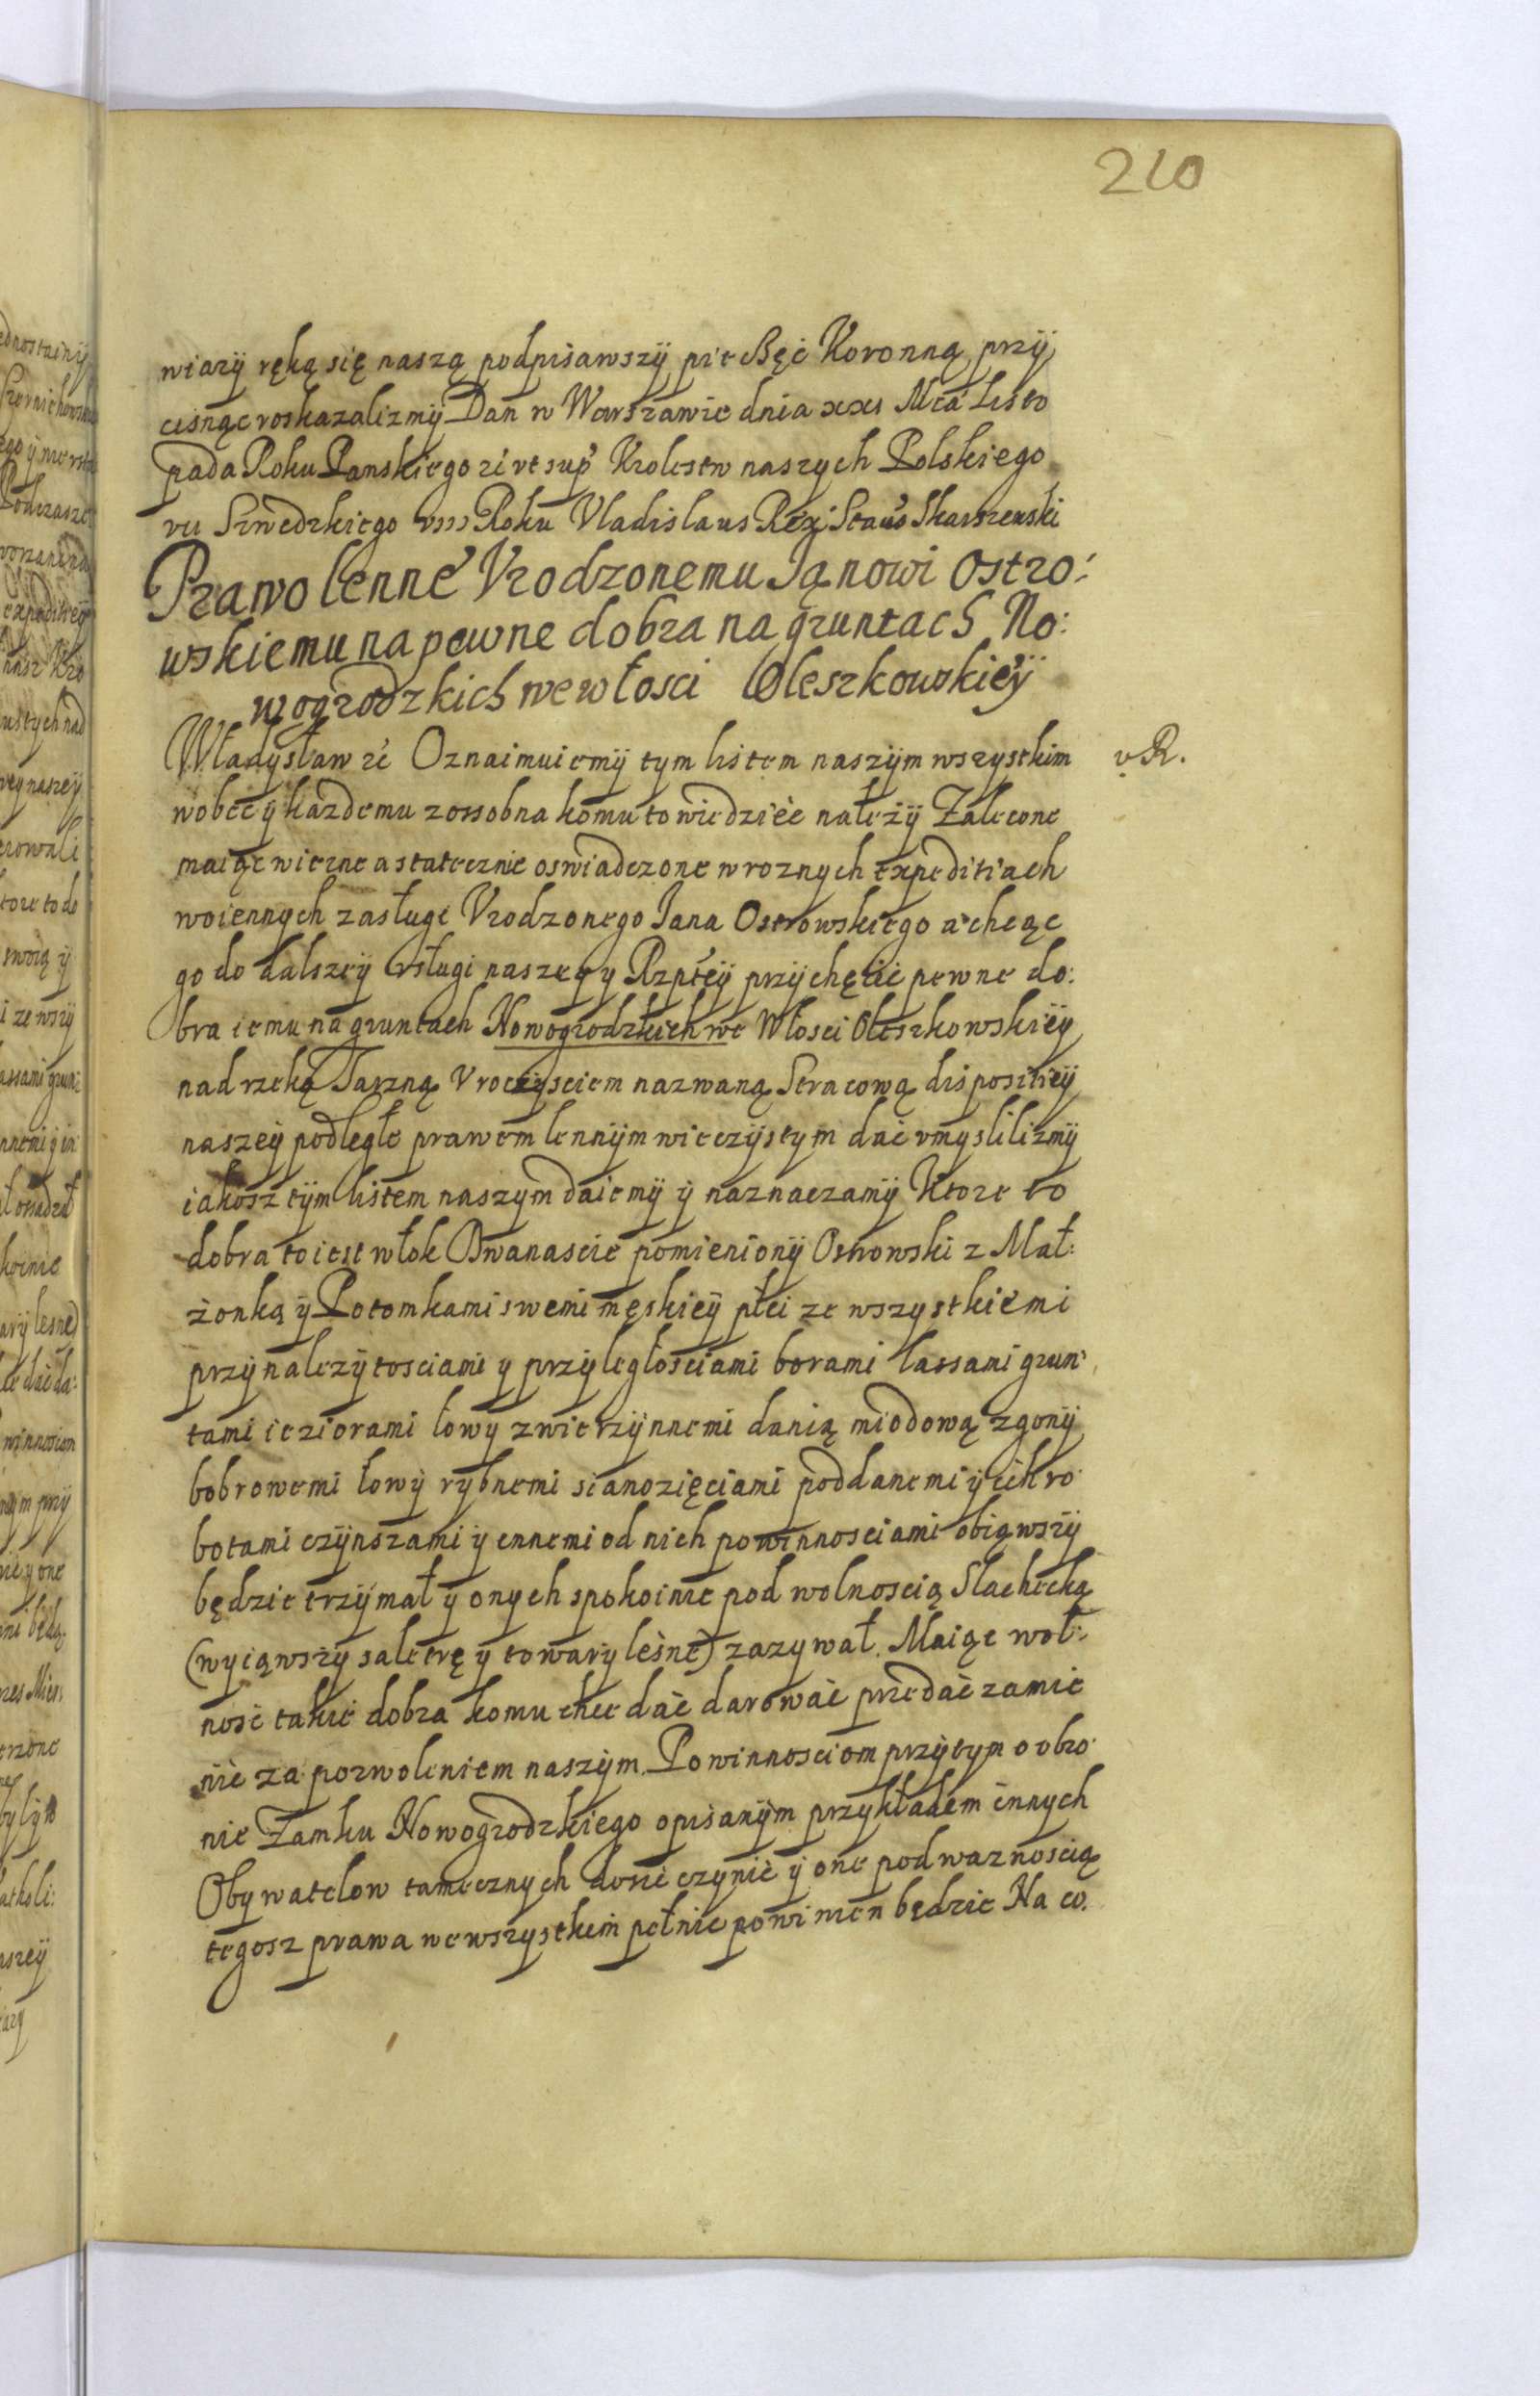 210
wiary ręką się naszą podpisawszy pieczęć Koronną przy
cisnąc roskazalizmy Dan w Warszawie dnia xxi Mca Listo
pada Roku Panskiego zc vt sup Krolestw naszych Polskiego
vii Szwedzkiego viii Roku Vladislaus Rex Staus Skarszewski
Prawo lenne Vrodzonemu Janowi Ostro:
wskiemu na pewne dobra na gruntach No:
wogrodzkich we włosci Oleszkowskiey
Władysław zc Oznaimuiemy tym listem naszym wszystkim
v R.
wobec y każdemu zossobna komu to wiedzieć należy Zalecone
maiąc wierne a statecznie oswiadczone w roznych expeditiach
woiennych zasługi Vrodzonego Jana Ostrowskiego a chcąc
go do dalszey vsługi naszey y Rzptey przychęcić pewne do:
bra iemu na gruntach Nowogrodzkich we Włosci Oleszkowskiey
nad rzeką Jaszną Vroczysciem nazwaną Stracową dispositiey
naszey podległe prawem lennym wieczystym dać vmyslilizmy
iakosz tym listem naszym daiemy y naznaczamy Ktore to
dobra to iest włok Dwanascie pomieniony Ostrowski z Mał:
żonką y Potomkami swemi męskiey płci ze wszystkiemi
przynalezytosciami y przyległościami borami lassami grun:
tami ieziorami łowy zwierzynnemi danią miodową zgony
bobrowemi łowy rybnemi sianozięciami poddanemi y ich ro
botami czynszami y ennemi od nich powinnosciami obiąwszy
będzie trzymał y onych spokoinie pod wolnoscią Slachecką
(wyiąwszy saletrę y towary leśne) zazywał. Maiąc wol:
ność takie dobra komu chce dać darować przedać zamie
nić za pozwoleniem naszym. Powinnosciom przytym o obro
nie Zamku Nowogrodzkiego opisanym przykładem innych
Obywatelow tamecznych dosić czynić y one pod waznoscią
tegosz prawa we wszystkim pełnić powinien będzie Na co.